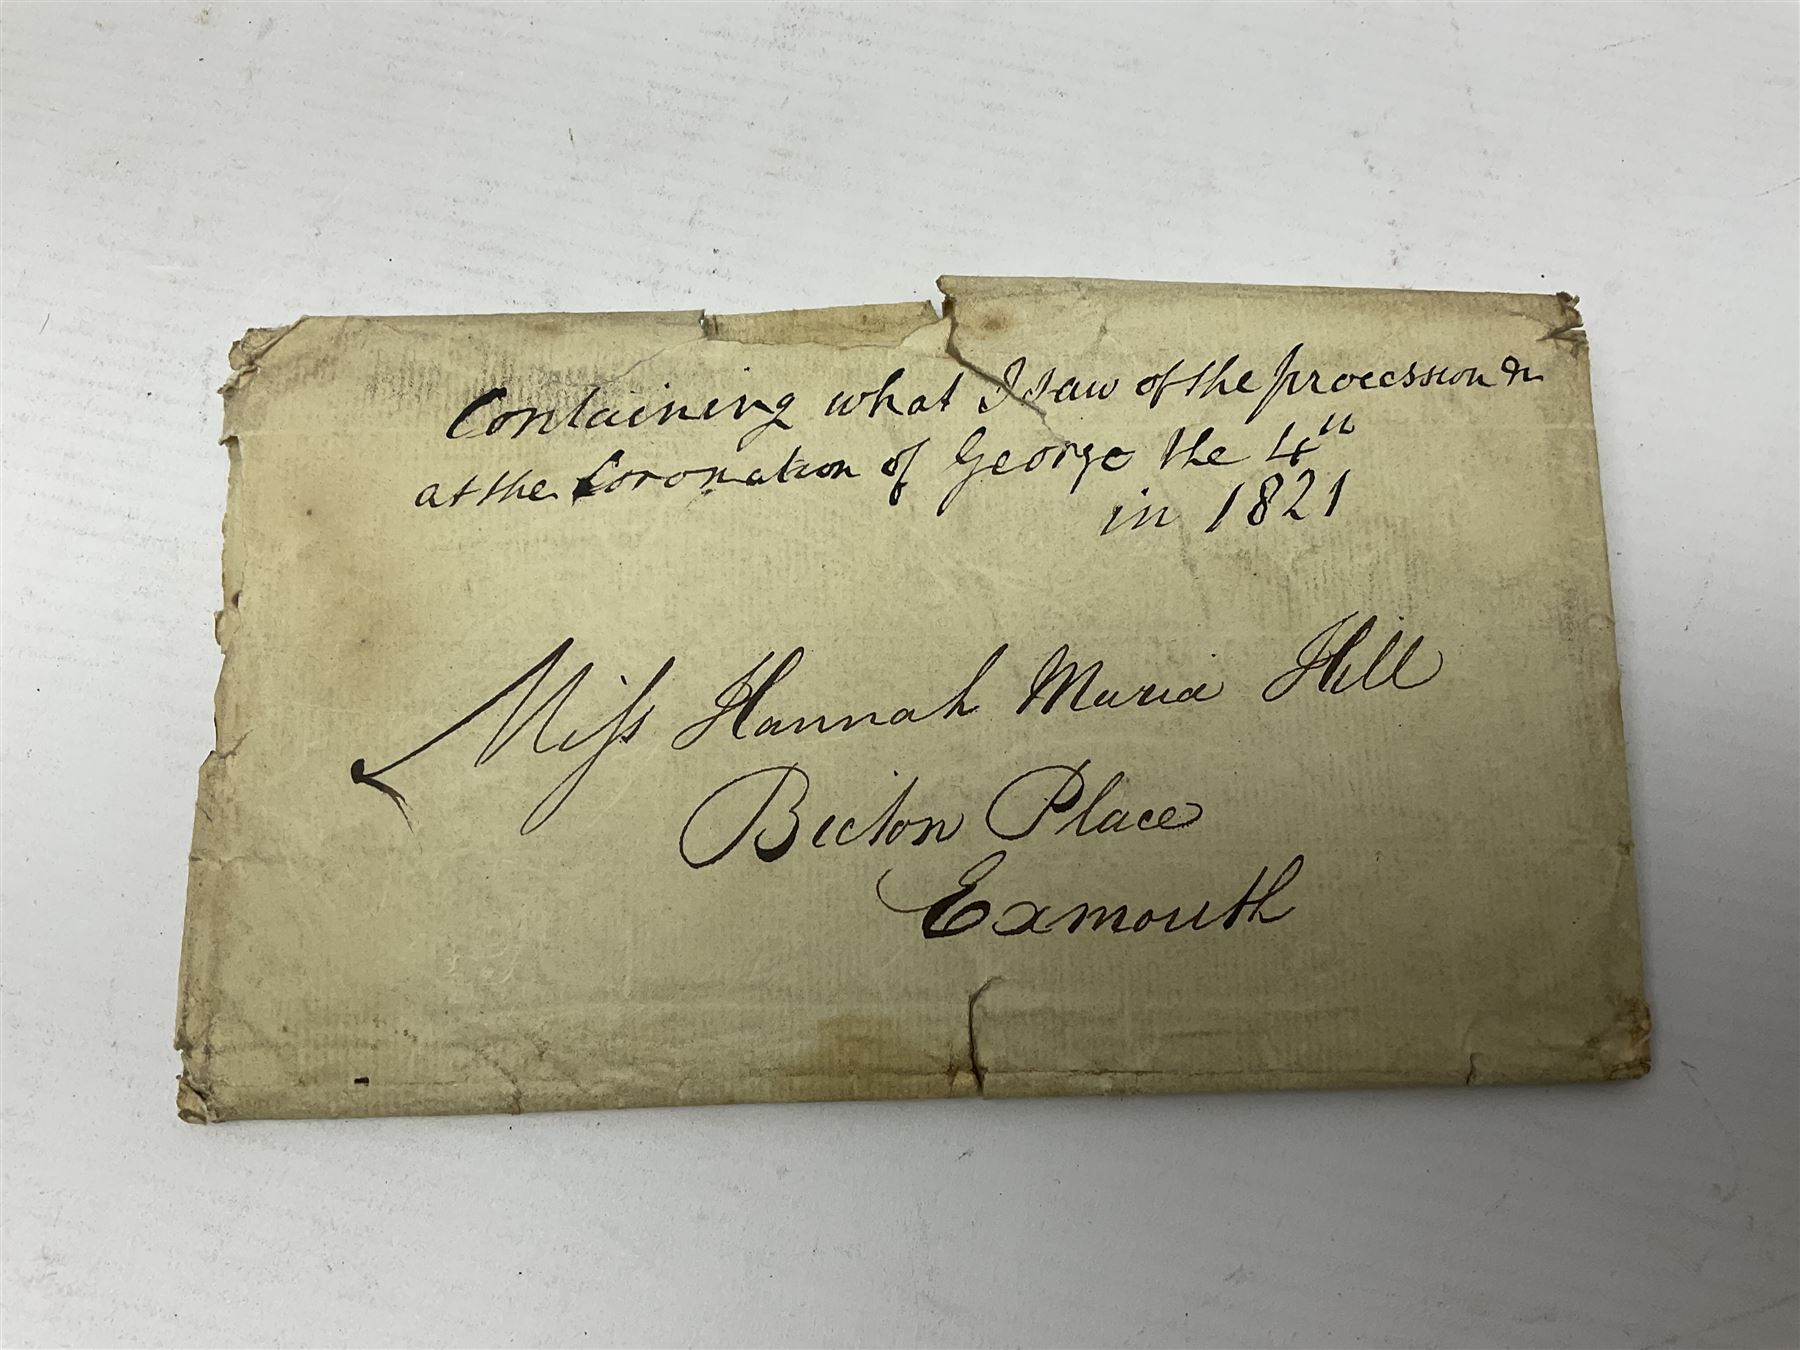 Containing what I saw of the procession &c
at the Coronation of George the 4th
in 1821
Miss Hannah Maria Hill
Bicton Place
Exmouth